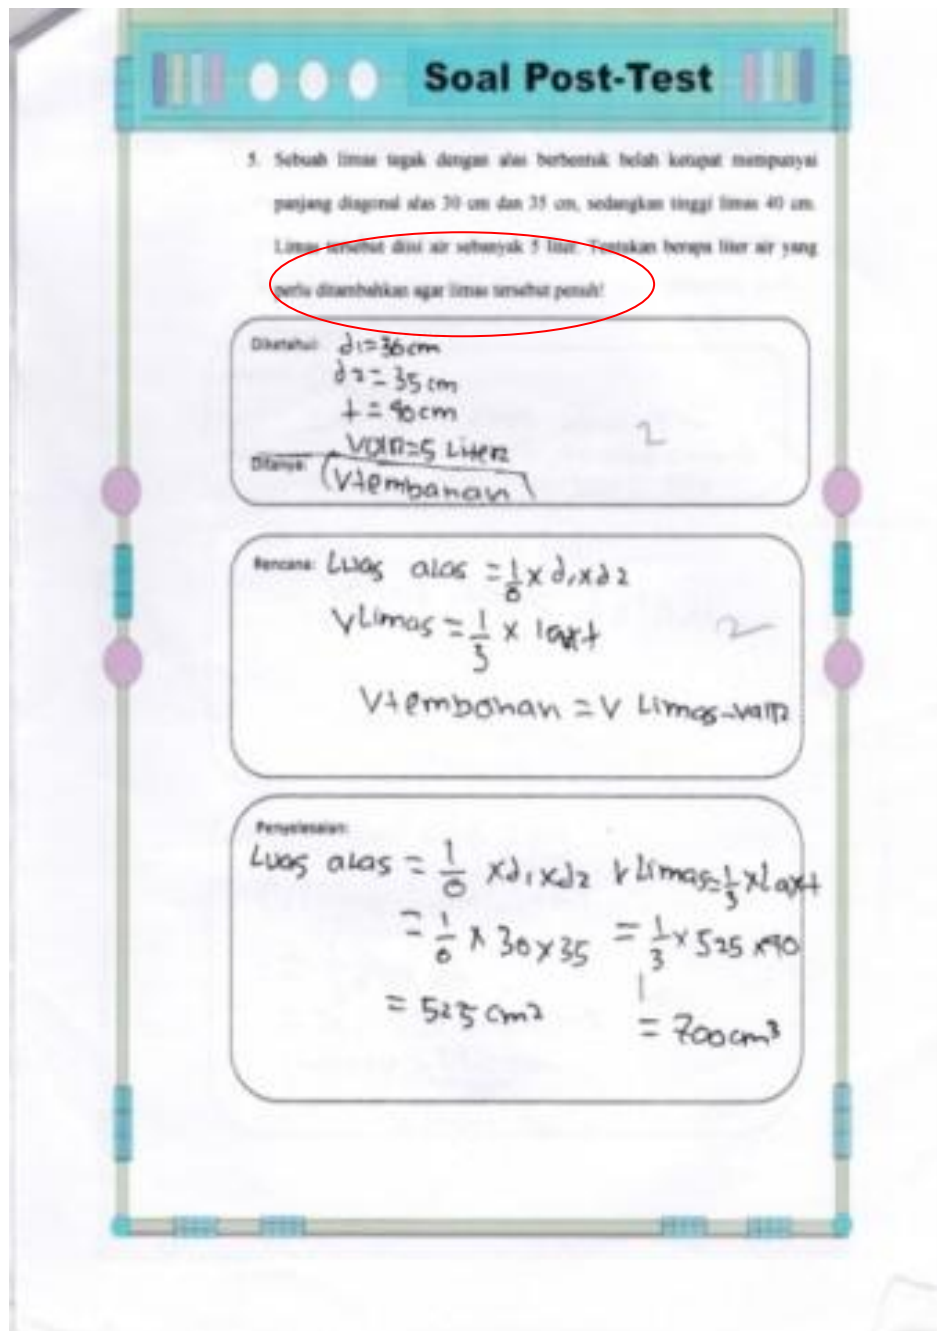 Soal Post-Test
5. Sebuah limas tegak dengan alas berbentuk belah ketupat mempunyai
panjang diagonal alas 30 cm dan 35 cm, sedangkan tinggi limas 40 cm.
Limas tersebut diisi air sebanyak 5 liter. Tentukan berapa liter air yang
perlu ditambahkan agar limas tersebut penuh!
Diketahui: d1=36cm
d2=35cm
t=40cm
Vair=5 Liter
Ditanya: Vtembahan
2
Rencana: Luas alas = 1/2 x d1xd2
V Limas = 1/3 x laxt
2
Vtembahan = V Limas-vair
Penyelesaian:
Luas alas = 1/2 xd1xd2 V Limas=1/3xLaxt
= 1/2 x 30x35 = 1/3 x 525 x40
= 525cm2 = 700cm3